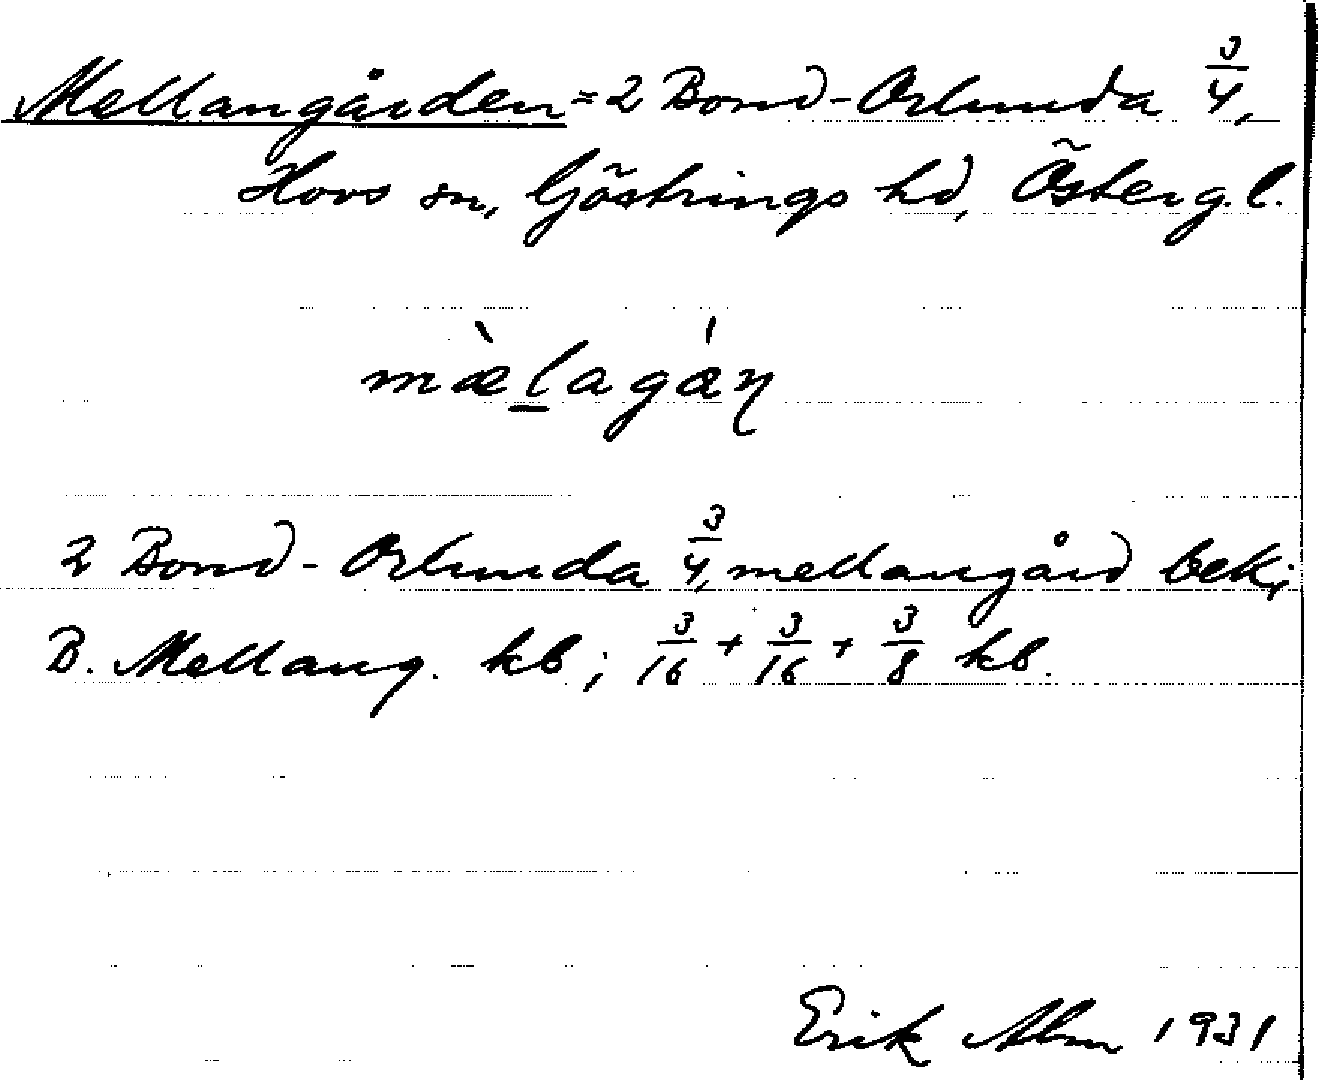 Mellangården = 2 Bond-Orlunda 3/4,
Hovs sn, Göstrings hd, Österg. l.
mæ̀lagǽɳ
2 Bond-Orlunda 3/4, mellangård bek;
B. Mellang. kb; 3/16 + 3/16 + 3/8 kb.
Erik Alm 1931